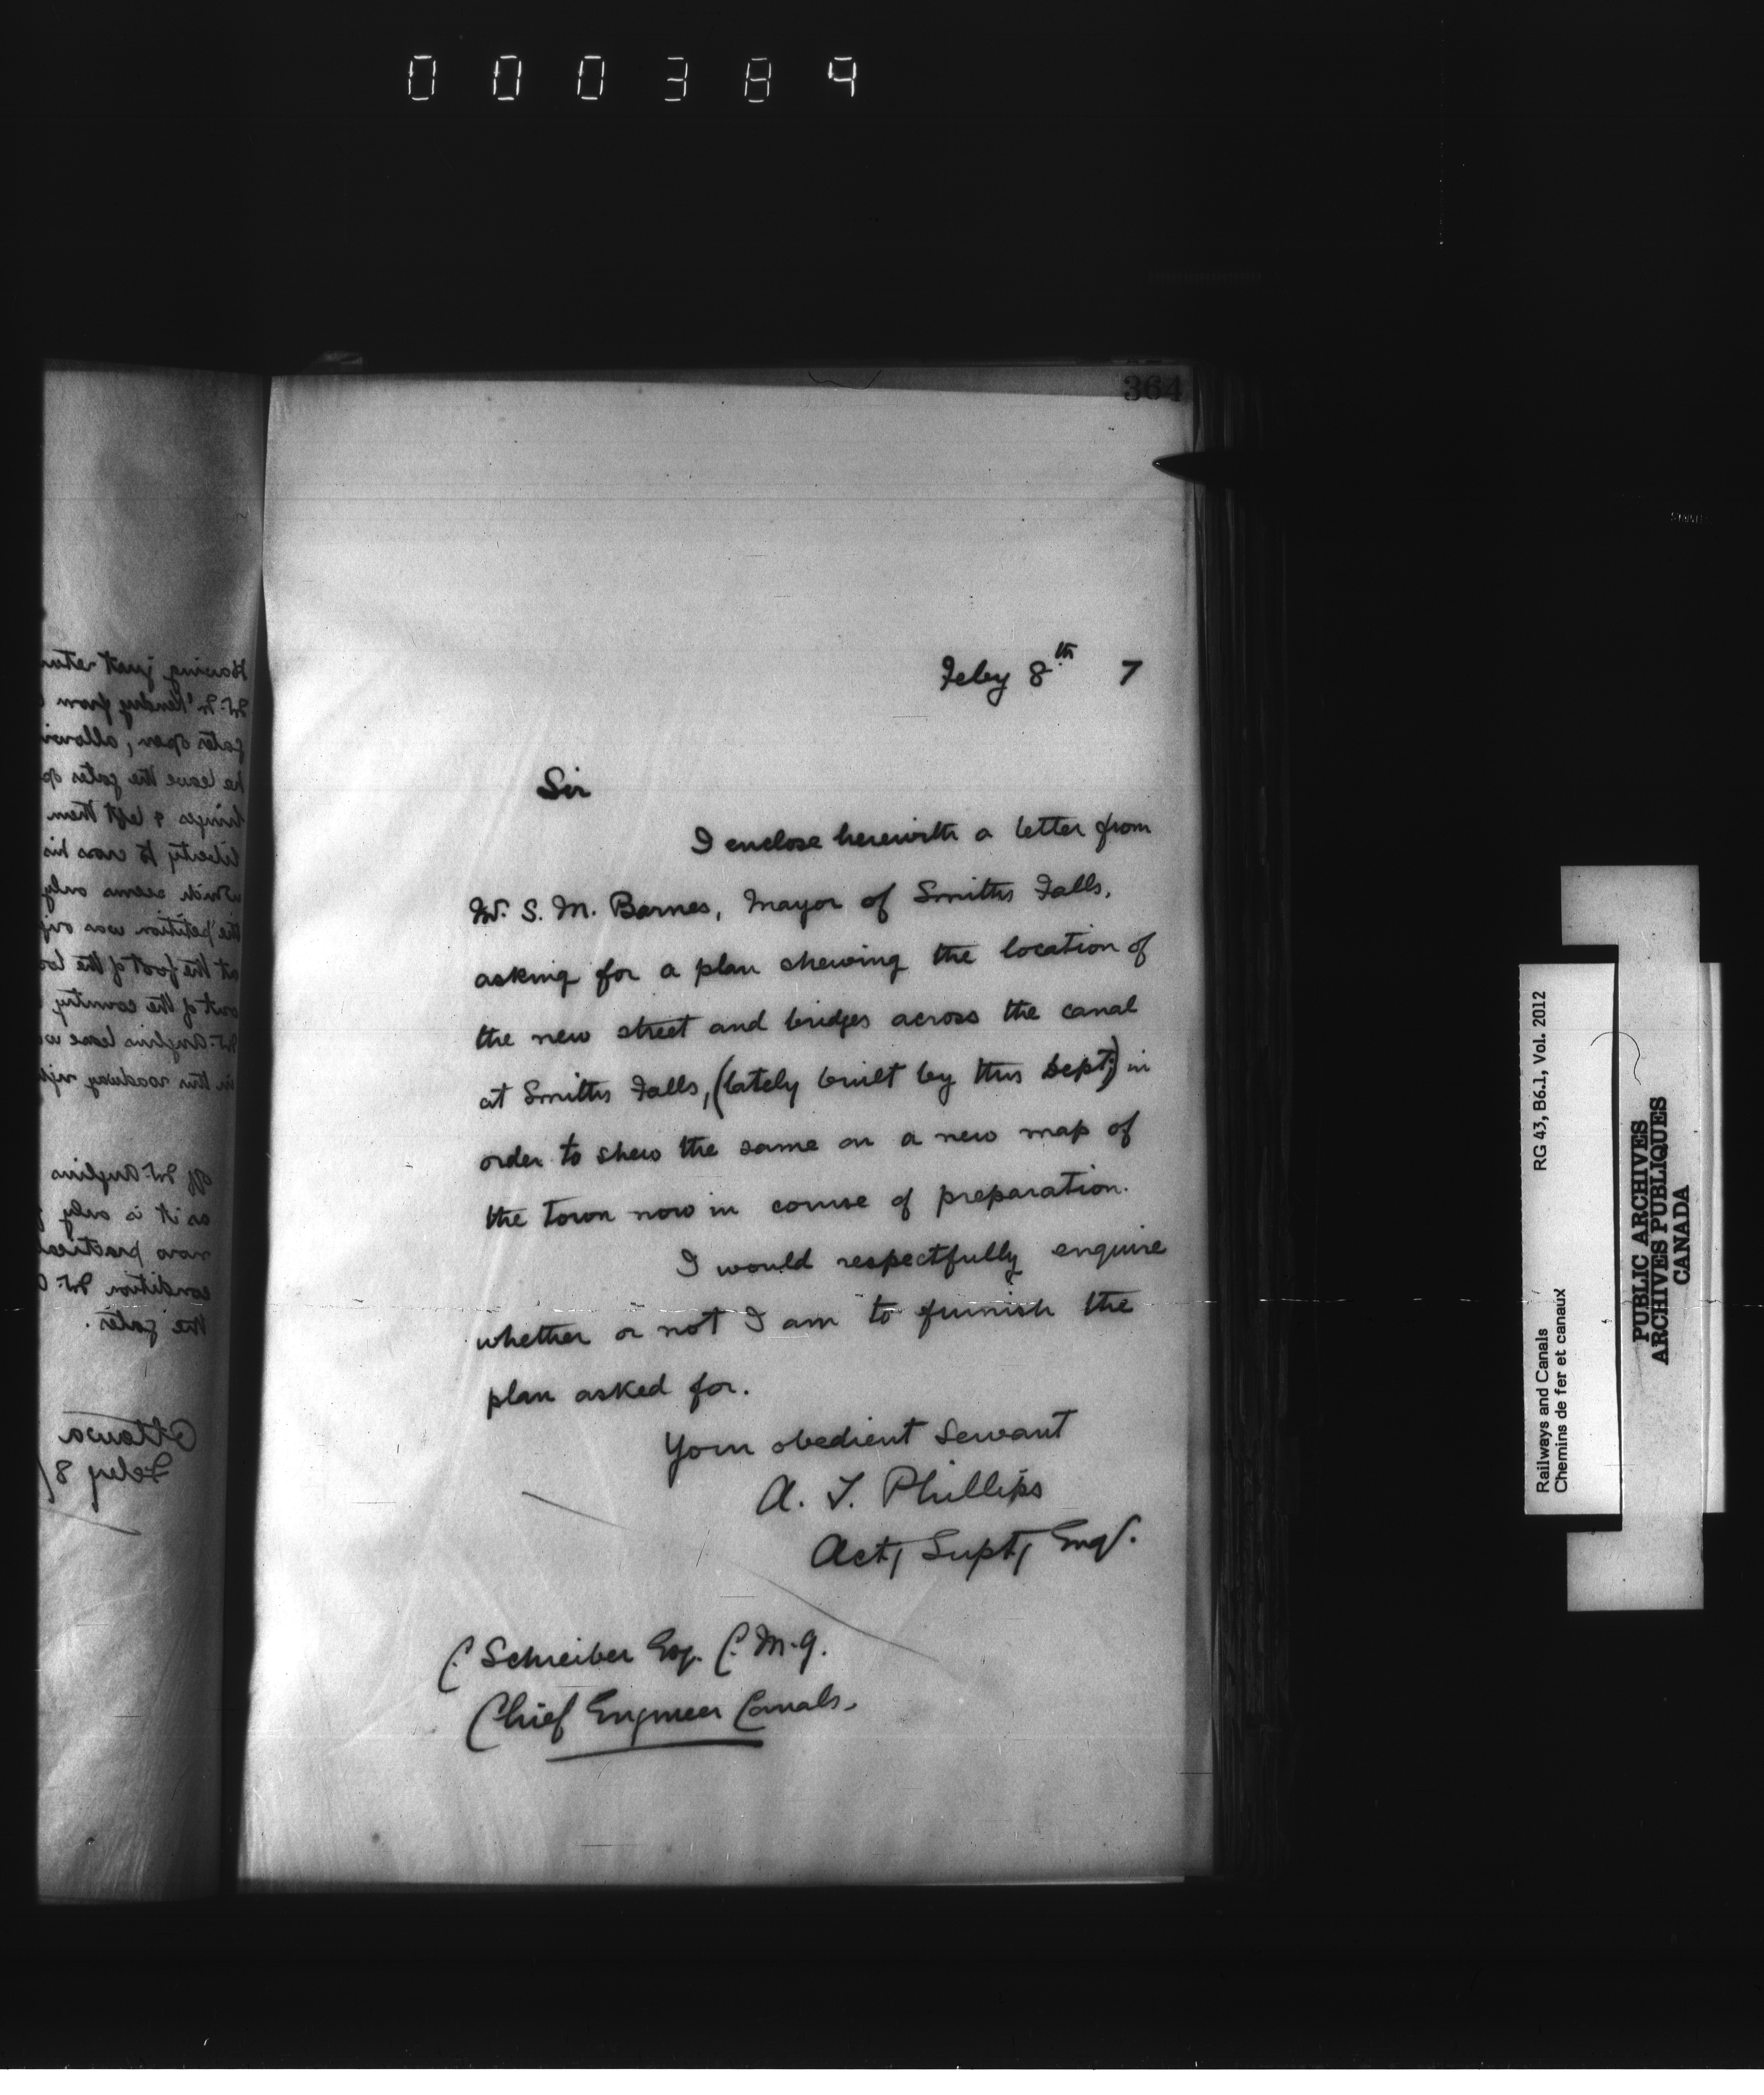 000384
364
Feby 8th 7
Sir
I enclose herewith a letter from
Mr. S. M. Barnes, Mayor of Smiths Falls,
asking for a plan shewing the location of
the new street and bridges across the canal
at Smiths Falls, (lately built by this Dept,) in
order to shew the same on a new map of
the town now in course of preparation.
I would respectfully enquire
whether or not I am to furnish the
plan asked for.
Your obedient servant
A. T. Phillips
Act, Supt, Engr.
C. Schreiber Esq. C. M. G.
Chief Engineer Canals.
Having just
gates open,
he leave the gates
hinges & left them
liberty to cross his
which seems only
the petition was
at the foot of the
out of the country
Mr. Anglins lease
in this roadway
off Mr. Anglins
as it is only
now
condition Mr.
the gates.
Ottawa
Feby 8/
RG 43, B6.1, Vol. 2012
Railways and Canals
Chemins de fer et canaux
PUBLIC ARCHIVES
ARCHIVES PUBLIQUES
CANADA